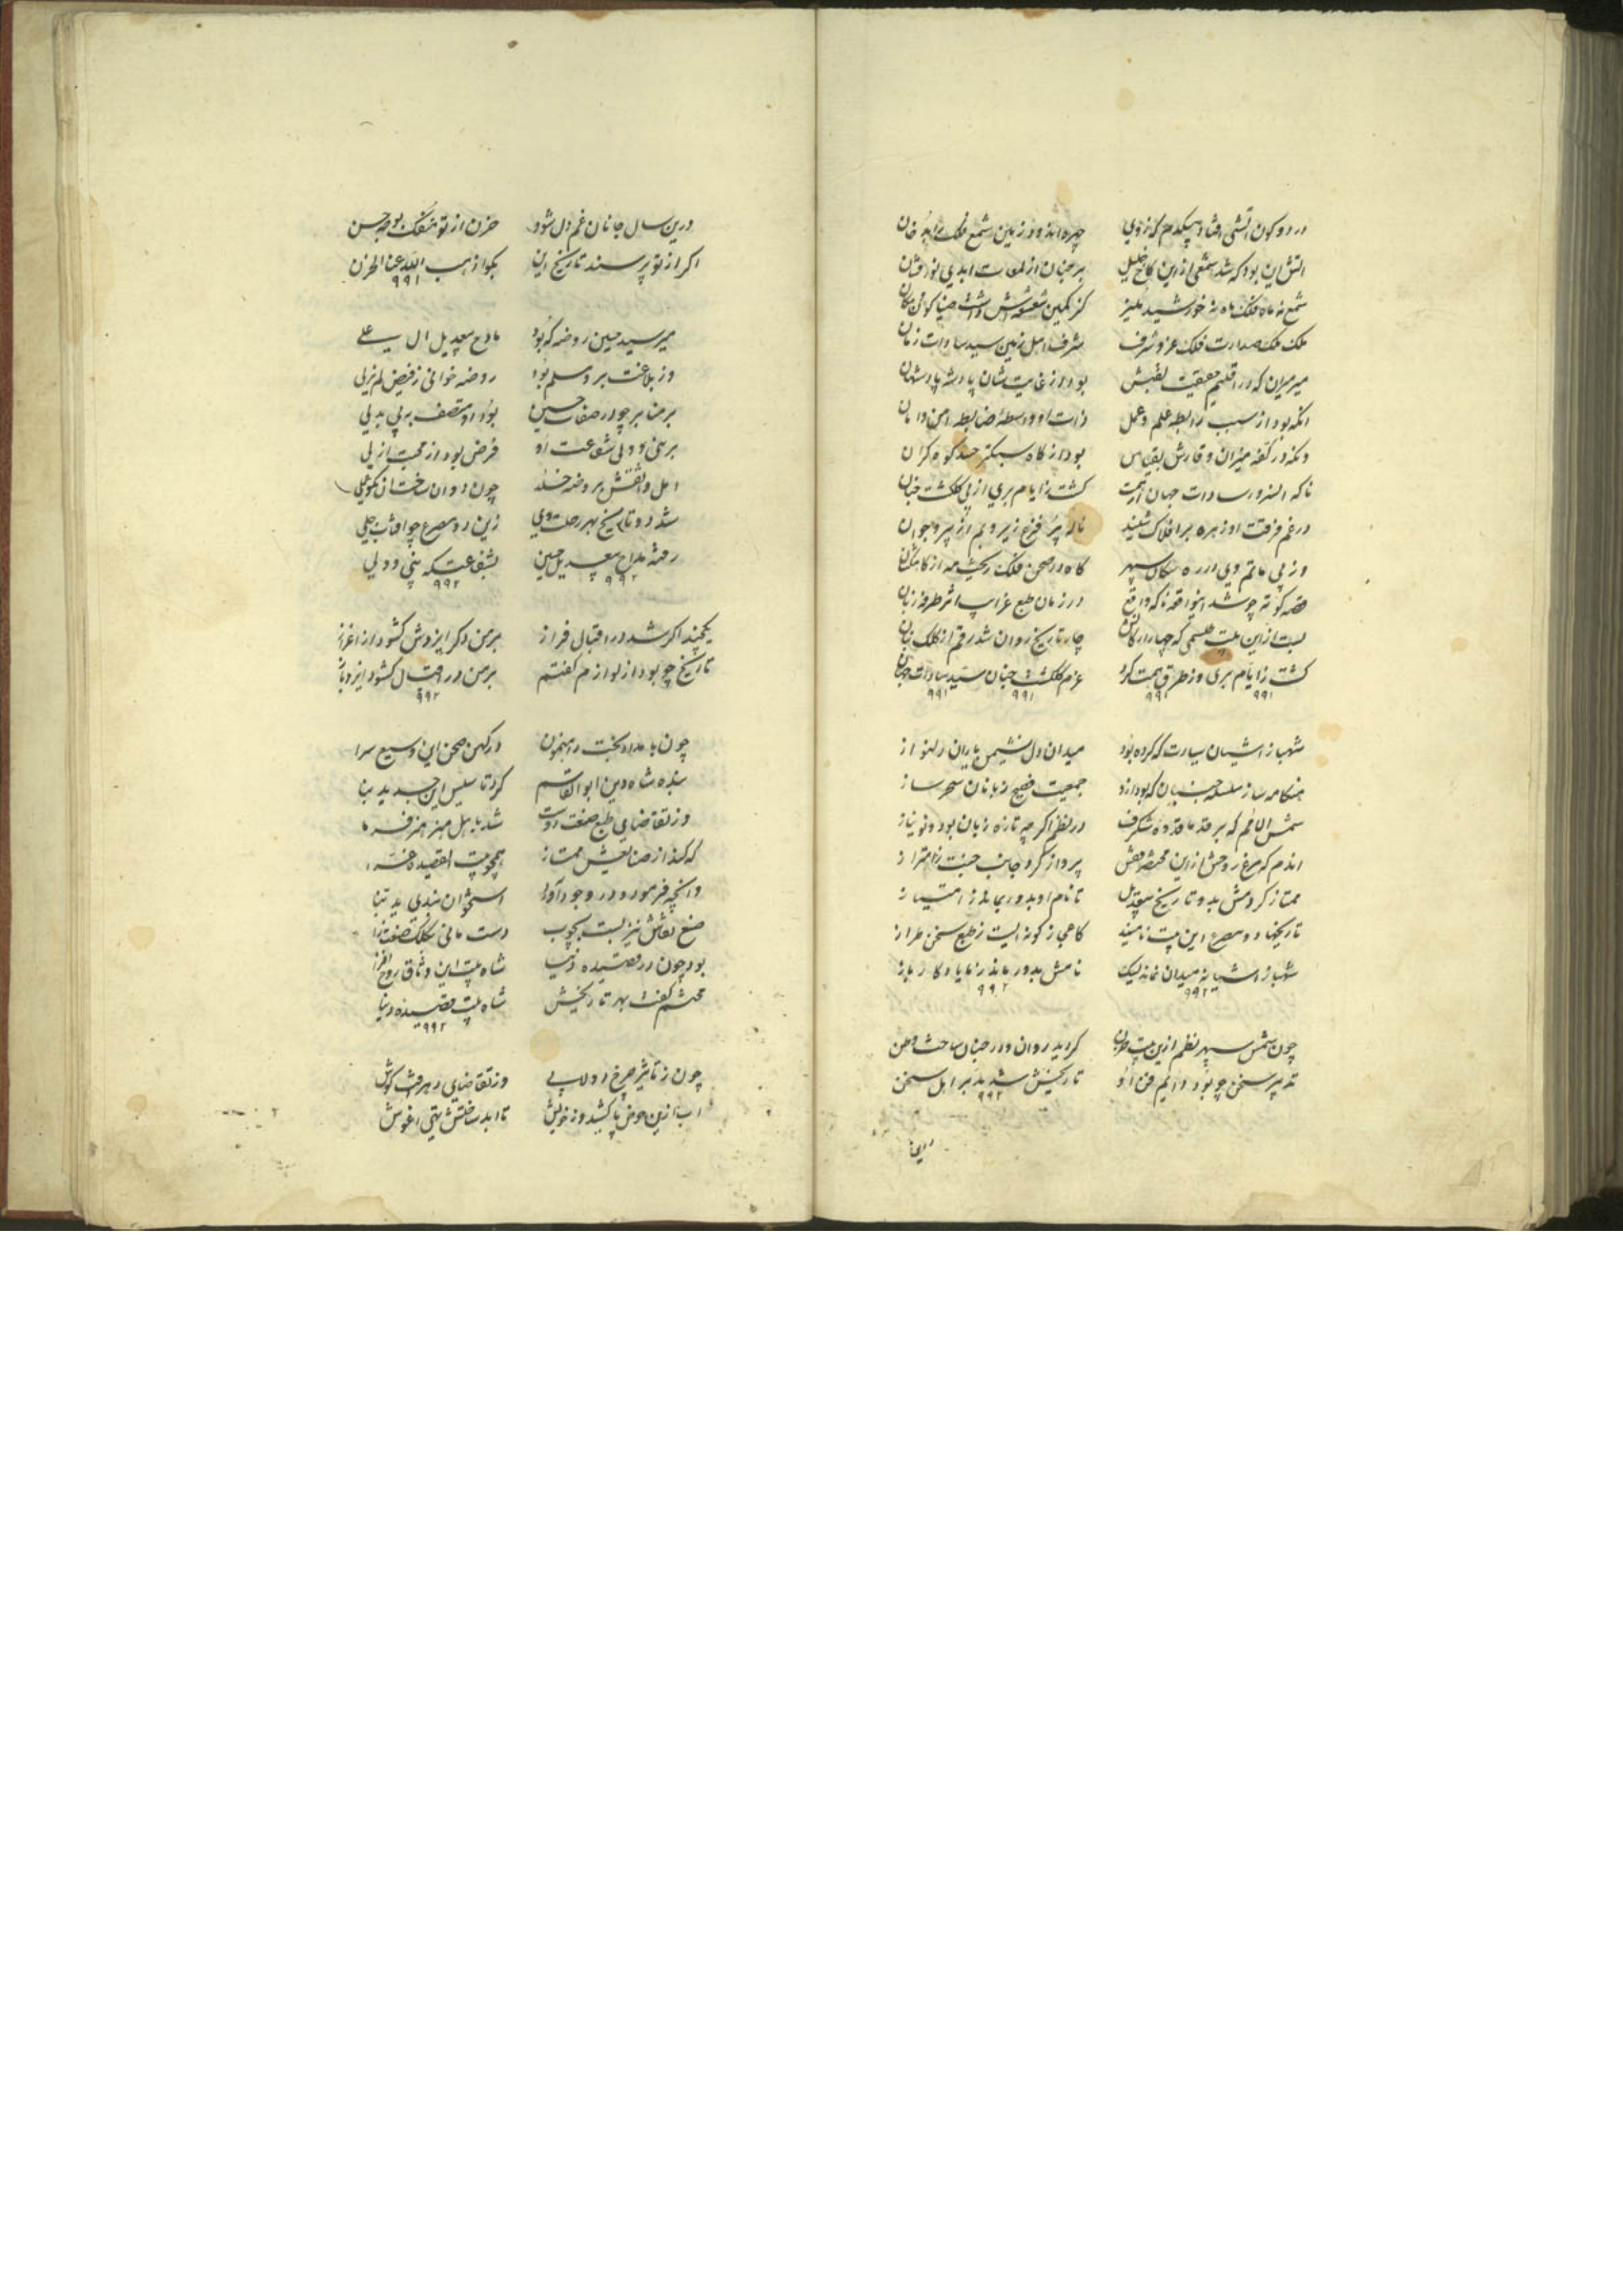 در دو کون آتشی افتاد بیکدم که ز دود چهره اندود زمین شمع فلک را بدخان
آتش این بود که شد شمعی ازین کاخ خلیل بر جنان از لمعات ابدی نور افشان
شمع نه ماه فلک ماه نه خورشید منیر کز کمین شعشعه اش داشت ضیا کون و مکان
ملک ملک صدارت فلک عز و شرف شرف اهل زمین سید سادات زمان
میر میران که در اقلیم حقیقت لقبش بود از غایت شان پادشه پادشهان
انکه بود از سبب رابطه علم و عمل ذات او واسطه ضابطه امن و امان
وانکه در کفه میزان وقارش بقیاس بود از کاه سبکتر صد کوه کران
ناکه السرور سادات جهان از همت کشت از ایام بری از پی کلکشت جنان
در غم فرقت او زهره بر افلاک شنید ناله پر فزع زیر و بم از پیر و جوان
وز پی ماتم وی در ره سکان سپهر کاه در صحن فلک ریخت مه از کاهکشان
قصه کوته چو شد اینواقعه ناکه واقع در زمان طبع غرایب اثر طرفه زبان
بست ازین بیت طلسمی که چهار ارکانش چار تاریخ روان شد رقم از کلک بنان
کشت ز ایام بری وز طرق همت کرد عزم کلکشت جنان سید سادات جهان
۹۹۱ ۹۹۱ ۹۹۱ ۹۹۱
شهباز آشیان سیادت که کرده بود میدان دل نشیمن یاران دلنواز
هنکامه ساز سلسله جنبان که بود ازو جمعیت فصیح زبانان سحر ساز
شمس الانام که بر قد شکرف در نظم اکرچه تازه زبان بود و نو نیاز
اندم که مرغ روحش ازین مختصر قفس پرواز کرد جانب جنت ز اهتزاز
ممتاز کردمش بدو تاریخ بیعدیل تا نام او بدو بیابد ز امتیاز
تاریخها دو مصرع این بیت نامیند کاعجاز کونه ایست ز طبع سخن طراز
شهباز آشیانه میدان نماند لیک نامش بدور ماند ز ما یادکار باز
۹۹۲ ۹۹۲
چون شمس سپهر نظم ازین بیت حزن کردید روان و در جنان ساخت وطن
تدبیر سخن چو بود دایم فن او تاریخش شد مدبر اهل سخن
۹۹۲
درین سال جانان غم دل شود حزن از تو منفک بوجه حسن
اکر از تو پرسند تاریخ این بکو اذهب الله عنا الحزن
۹۹۱
میر سید حسین روضه که بود مادح بیعدیل ال علی
وز بلاغت برو مسلم بود روضه خوانی ز فیض لم یزلی
بر منابر چو در صفات حسین بود او متصف به بی بدلی
بر نبی و ولی شفاعت او فرض بود از محبت ازلی
اهل واثقش بروضه خلد چون روان ساخت از نکو عملی
شد دو تاریخ بهر رحلت وی زین دو مصرع چو افتاب جلی
رفته مداح بیعدیل حسین بشفاعتکه نبی و ولی
۹۹۲ ۹۹۲
یکچند اکر شد در اقبال فراز بر من دکر ایزدش کشود از اعزاز
تاریخ چو بود از لوازم کفتم بر من در اقبال کشود ایزد باز
۹۹۲
چون بامداد بخت راهنمون در کهن صحن این وسیع سرا
بنده شاه دین ابوالقاسم کرد تاسیس این جدید بنا
وز تقاضای طبع صنعت دوست شد باهل هنر هنر فرما
که کند از صنایعش ممتاز همچو بیت القصیده غرا
وانچه فرمود در وجود آورد استخوان بندی بدیع بنا
صنع نقاش نیز بست بچوب دست مانی بکلک صنعت زا
بود چون در قصیده دنیا شاه بیت این وثاق روح افزا
محتشم کفت بهر تاریخش شاه بیت قصیده دنیا
۹۹۲
چون ز تاثیر چرخ دولابی وز تقاضای دهر وقت کوش
اب ازین حوض پا کشید و ز خویش تا ابد ساختش تهی اغوش